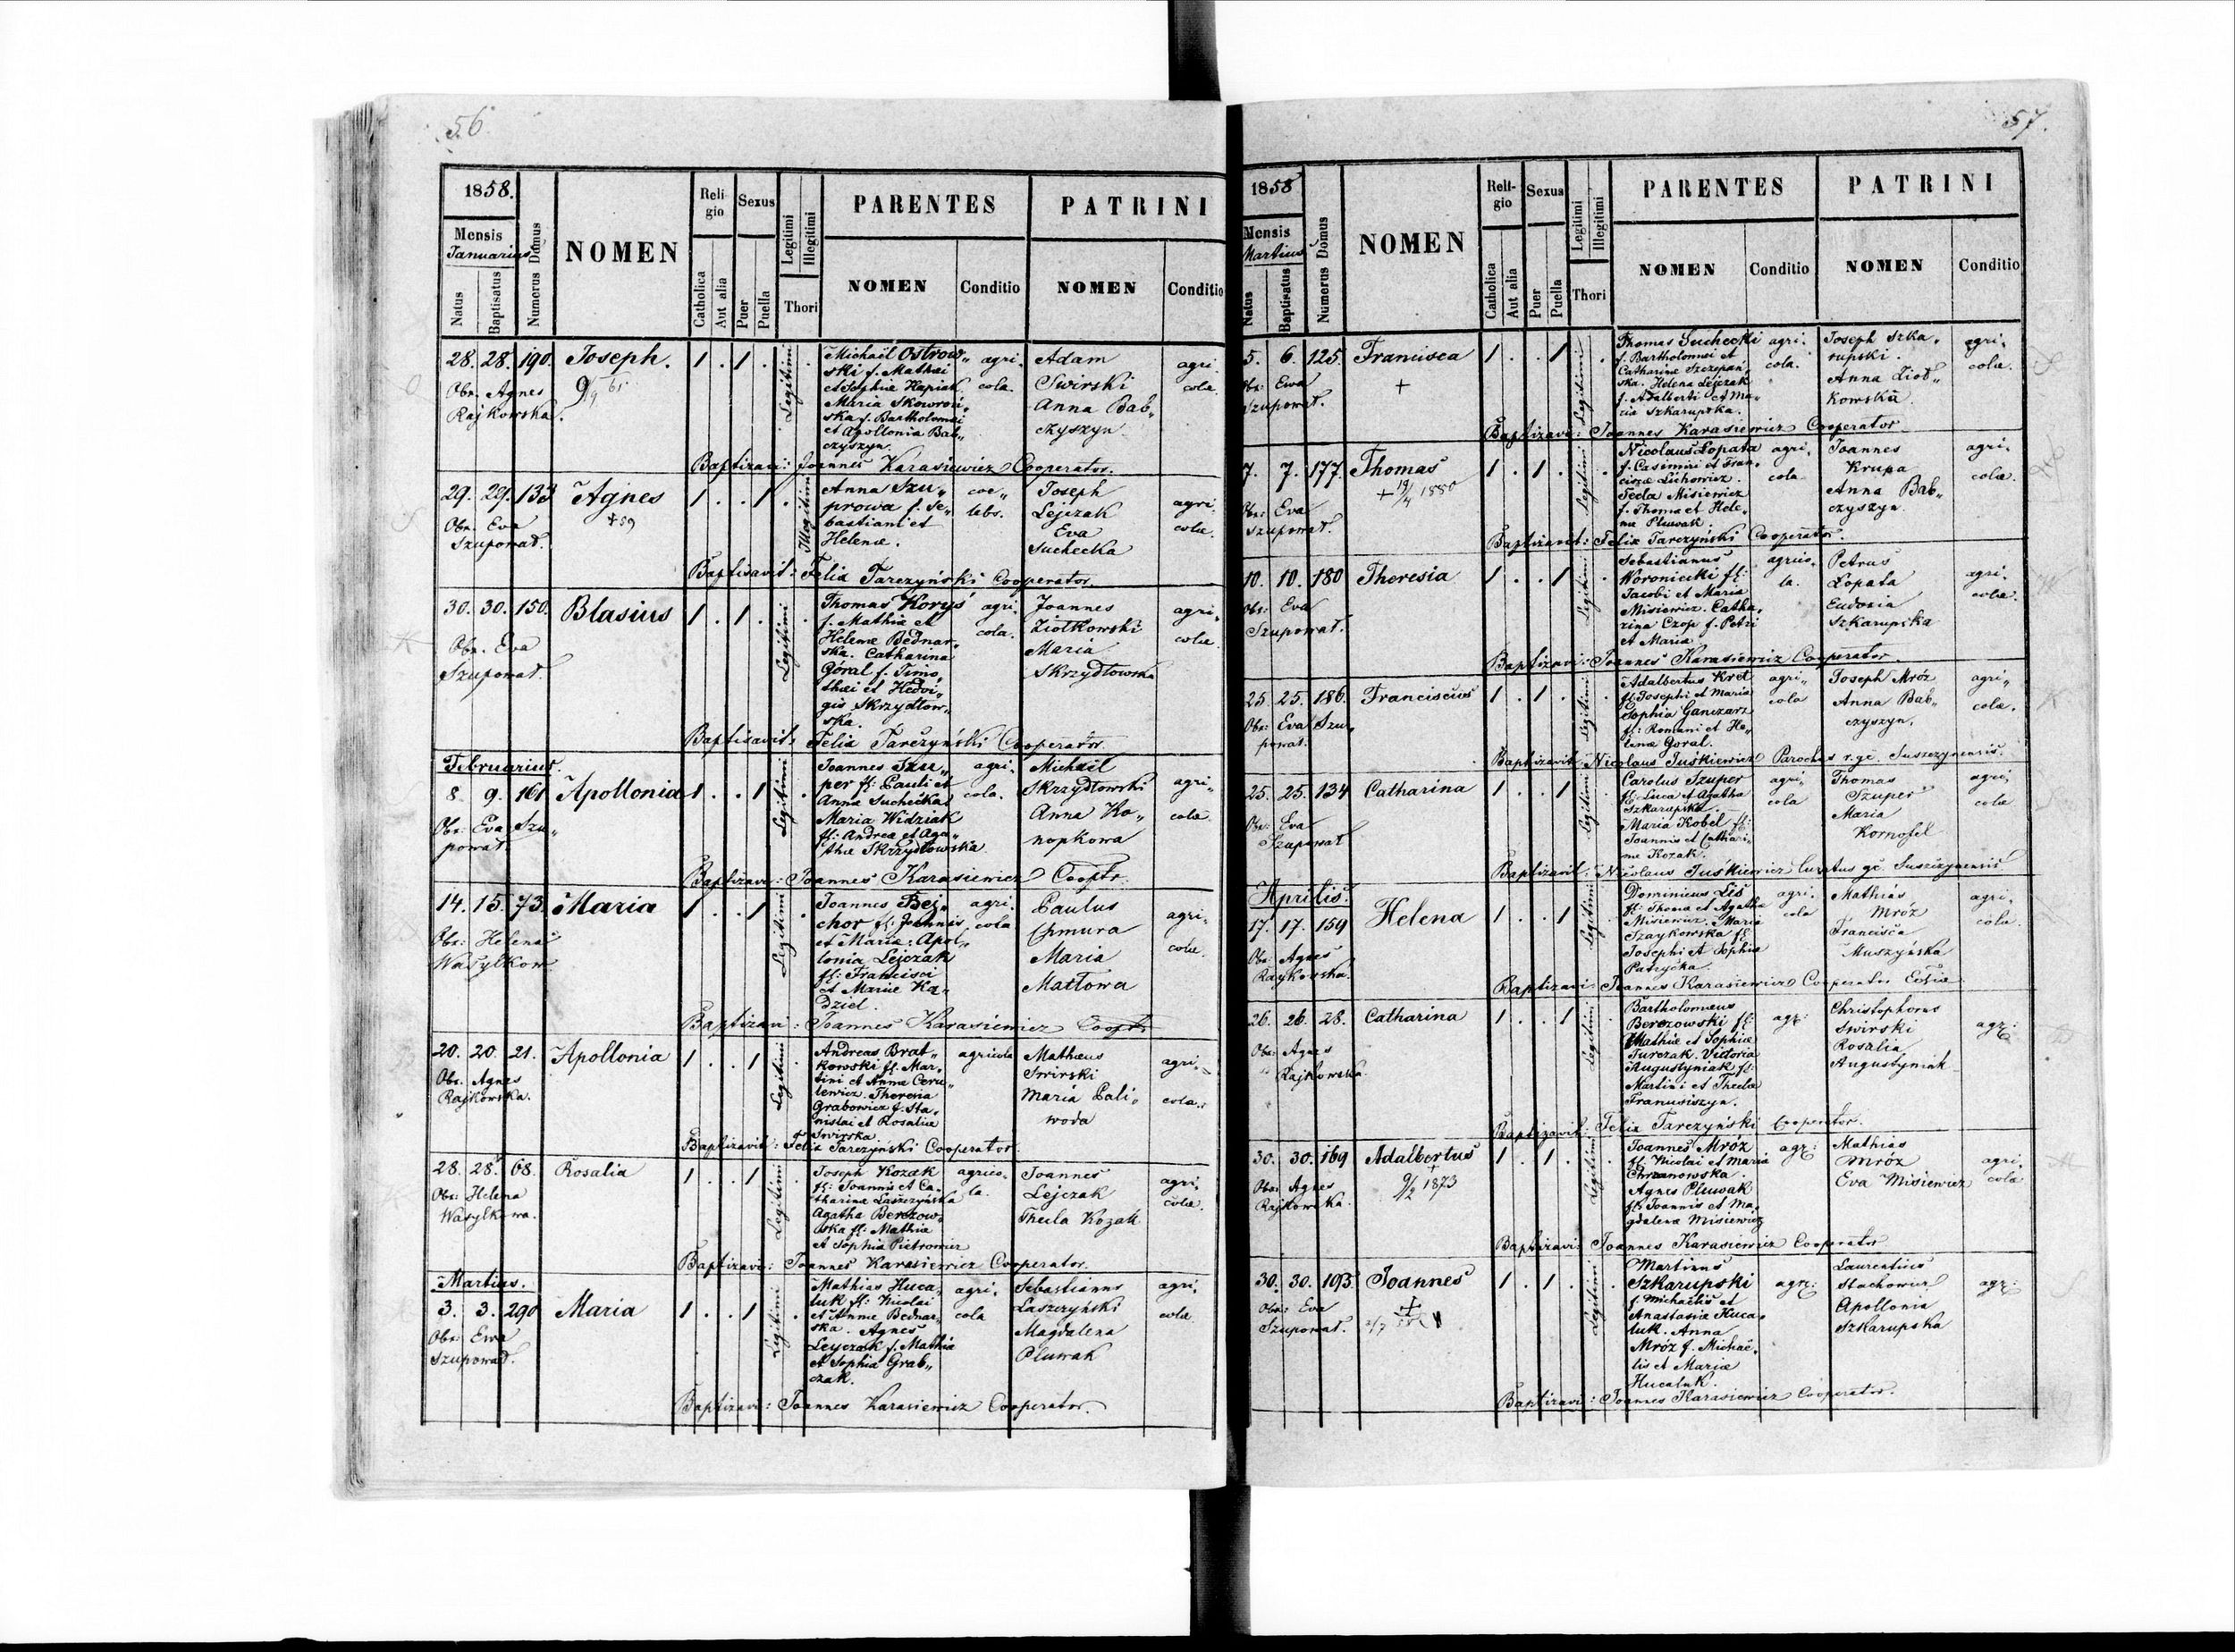 56.
1858.
Mensis
Januarius
Natus
Baptisatus
Numerus Domus
NOMEN
Reli-
gio
Catholica
Aut alia
Sexus
Puer
Puella
Legitimi
Illegitimi
Thori
PARENTES
NOMEN
Conditio
PATRINI
NOMEN
Conditio
28. 28. 190. Joseph. 1 . 1 . Legitimi .
Obs. Agnes
Rajkowska.
Michaël Ostrow„
ski f. Mathæi
et Sophiæ Hapiak
Maria Skowroń„
ska f. Bartholomæi
et Apollonia Bab„
czyszyn
agri.
cola.
Adam
Swirski
Anna Bab„
czyszyn
agri.
colæ
Baptizavi: Joannes Karasiewicz Cooperator.
29. 29. 133 Agnes 1 . . 1 . Illegitimi
+ 59
Obs. Eva
Szupowat.
Anna Szu„
prowa f. Se„
bastiani et
Helenæ.
coe„
lebs.
Joseph
Lejczak
Eva
Suchecka
agri
colæ.
Baptisavit: Felix Tarczyński Cooperator.
30. 30. 150. Blasius 1 . 1 . Legitimi .
Obs. Eva
Szupowat.
Thomas Koryś
f. Mathiæ et
Helenæ Bednar„
ska. Catharina
Góral f. Timo„
thæi et Hedvi„
gis Skrzydłow„
ska.
agri„
cola.
Joannes
Ziołkowski
Maria
Skrzydłowska
agri„
colæ
Baptisavit: Felix Tarczyński Cooperator.
Februarius.
8. 9. 161 Apollonia 1 . . 1 Legitimi .
Obs: Eva Szu„
powat.
Joannes Szu„
per fl: Pauli et
Anna Suchecka
Maria Widziak
fl: Andrea et Aga„
tha Skrzydłowska
agri„
cola.
Michaël
Skrzydłowski
Anna Ko„
nopkowa
agri„
colæ.
Baptizavi: Joannes Karasiewicz Cooptr.
14. 15. 73. Maria 1 . . 1 Legitimi .
Obs: Helena
Wasylkow
Joannes Bej„
chor fl: Joannis
et Maria: Apol„
lonia Lejczak
fl: Francisci
et Mariæ Ka„
dziel.
agri.
cola
Paulus
Chmura
Maria
Matłowa
agri„
colæ.
Baptizavi: Joannes Karasiewicz Cooptr.
20. 20. 21. Apollonia 1 . . 1 Legitimi .
Obs. Agnes
Rajkowska.
Andreas Brat„
kowski fl. Mar„
tini et Anna Ceru„
lewicz. Theresia
Grabowicz f. Sta„
nislai et Rosaliæ
Swirska.
agricola
Mathæus
Swirski
Maria Pali„
woda
agri„
colæ.
Baptizavit: Felix Tarczyński Cooperator.
28. 28. 68. Rosalia 1 . . 1 Legitimi .
Obs: Helena
Wasylkowa.
Joseph Kozak
fl: Joannis et Ca„
tharina Laszczyńska
Agatha Berezow„
ska fl: Mathiæ
et Sophia Pietrowicz
agrico„
la.
Joannes
Lejczak
Thecla Kozak
agri„
colæ.
Baptizavi: Joannes Karasiewicz Cooperator.
Martius.
3. 3. 290 Maria 1 . . 1 Legitimi .
Obs: Ewa
Szupowat.
Mathias Huca„
luk fl: Nicolai
et Annæ Bednar„
ska. Agnes
Leyczak f. Mathiæ
et Sophia Grab„
czak.
agri„
cola
Sebastianus
Laszczyński
Magdalena
Pluwak
agri„
colæ
Baptizavi: Joannes Karasiewicz Cooperator.
57.
1858
Mensis
Martius
Natus
Baptisatus
Numerus Domus
NOMEN
Reli-
gio
Catholica
Aut alia
Sexus
Puer
Puella
Legitimi
Illegitimi
Thori
PARENTES
NOMEN
Conditio
PATRINI
NOMEN
Conditio
5. 6. 125 Francisca 1 . . 1 Legitimi .
+
Obs: Ewa
Szupowat.
Thomas Suchecki
f. Bartholomæi et
Catharinæ Szczepań„
ska. Helena Lejczak
f. Adalberti et Ma„
ria Szkarupska.
agri„
cola.
Joseph Szka„
rupski.
Anna Zioł„
kowska
agri„
colæ.
Baptizavi: Joannes Karasiewicz Cooperator
7. 7. 177. Thomas 1 . 1 . Legitimi .
+ 19/4 1880
Obs: Eva
Szupowat.
Nicolaus Łopata
f. Casimiri et Fran„
ciscæ Lichowicz.
Tecla Misiewicz
f. Thoma et Hele„
næ Pluwak.
agri„
cola
Joannes
Krupa
Anna Bab„
czyszyn
agri„
colæ.
Baptizavit: Felix Tarczyński Cooperator.
10. 10. 180 Theresia 1 . . 1 Legitimi .
Obs: Eva
Szupowat.
Sebastianus
Woroniecki fl:
Jacobi et Maria
Misiewicz. Catha„
rina Czop f. Petri
et Maria
agrico„
la.
Petrus
Łopata
Eudoxia
Szkarupska
agri„
colæ.
Baptizavi: Joannes Karasiewicz Cooperator.
25. 25. 186. Franciscus 1 . 1 . Legitimi .
Obs: Eva Szu„
powat.
Adalbertus Kret
fl: Josephi et Maria
Sophia Ganczarz
fl: Romani et He„
lenæ Goral.
agri„
cola
Joseph Mróz
Anna Bab„
czyszyn.
agri„
colæ.
Baptizavit: Nicolaus Juśkiewicz Parochus r. gc. Suszczynensis.
25. 25. 134 Catharina 1 . . 1 Legitimi .
Obs: Eva
Szupowat
Carolus Szuper
fl: Luca et Agatha
Szkarupska.
Maria Kobel fl:
Joannis et Cathari„
næ Kozak.
agri„
cola
Thomas
Szuper
Maria
Kornofel
agri„
colæ
Baptizavit: Nicolaus Juśkiewicz Curatus gc Suszczynensis
Aprilis.
17. 17. 159 Helena 1 . . 1 Legitimi .
Obs: Agnes
Raykowska.
Dominicus Lis
fl: Thoma et Agatha
Misiewicz. Maria
Szaykowska fl:
Josephi et Sophia
Patrycka.
agri„
cola
Mathias
Mróz
Francisca
Muszyńska
agri„
colæ.
Baptizavi: Joannes Karasiewicz Cooperator Ecclae
26. 26. 28. Catharina 1 . . 1 Legitimi .
Obs: Agnes
Rajkowska
Bartholomeus
Berezowski fl:
Mathiæ et Sophiæ
Turczak. Victoria
Augustyniak fl:
Martini et Theclæ
Franusiszyn.
agr:
Christophorus
Swirski
Rosalia
Augustyniak
agr:
Baptizavit: Felix Tarczyński Cooperator.
30. 30. 169 Adalbertus 1 . 1 . Legitimi .
+
9/2 1873
Obs: Agnes
Rajkowska.
Joannes Mróz
fl: Nicolai et Maria
Chrzanowska.
Agnes Pluwak
fl: Joannis et Ma„
gdalenæ Misiewicz
agr:
Mathias
Mróz
Eva Misiewicz
agri„
colæ
Baptizavi: Joannes Karasiewicz Cooperator
30. 30. 193. Joannes 1 . 1 . Legitimi .
+
Obs: Eva
Szupowat.
Martinus
Szkarupski
f. Michaëlis et
Anastasia Huca„
luk. Anna
Mróz f. Michaë„
lis et Mariæ
Hucaluk.
agr:
Laurentius
Stachowur
Apollonia
Szkarupska
agr:
Baptizavi: Joannes Karasiewicz Cooperator.